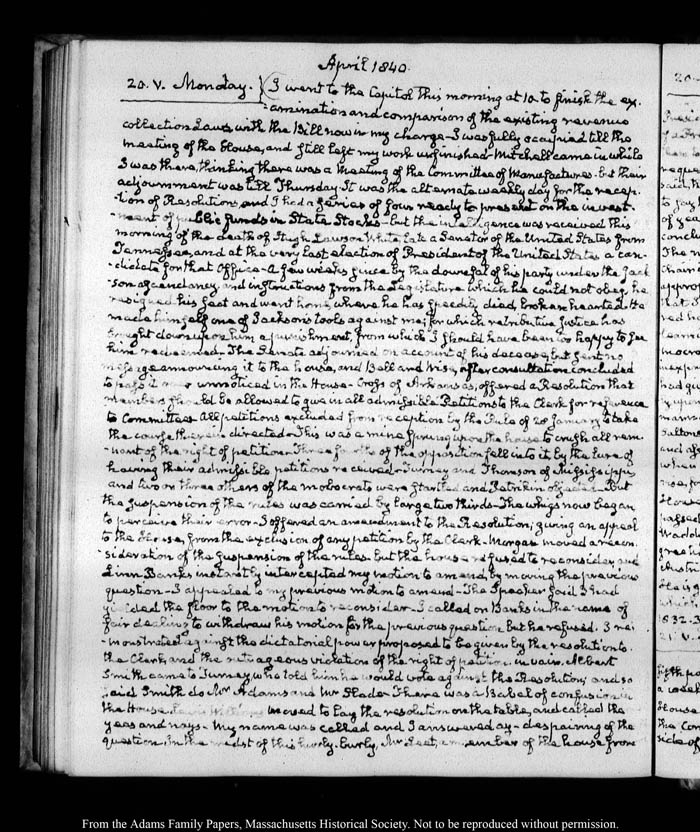 April 1840.
20. V. Monday. I went to the Capitol this morning at 10 to finish the ex-
-amination and comparison of the existing revenue
collection Laws with the Bill now in my charge- I was fully occupied till the
meeting of the House, and still left my work unfinished. Mitchell came in while
I was there, thinking there was a meeting of the Committee of Manufactures- but their
adjournment was till Thursday. It was the alternate weekly day for the recep-
-tion of Resolutions, and I had a series of four ready to present on the invest-
-ment of public funds in State Stocks- but the intelligence was received this
morning of the death of Hugh Lawson White late a Senator of the United States from
Tennessee, and at the very last election of President of the United States a can-
-didate for that Office- A few weeks since by the downfal of his party under the Jack-
-son ascendancy, and instructions from the Legislature which he could not obey, he
resigned his seat and went home, where he has speedily died, broken hearted. He
made himself one of Jackson's tools against me; for which retributive Justice has
brought down upon him a punishment, from which I should have been too happy to see
him redeemed. The Senate adjourned on account of his decease, but sent no
message announcing it to the house, and Bell and Wise, after consultation concluded
to pass it over unnoticed in the House- Cross of Arkansas, offered a Resolution that
members should be allowed to give in all admissible Petitions to the Clerk for reference
to Committees. All petitions excluded from reception by the Rule of 28 January to take
the course therein directed- This was a mine sprung upon the house to crush all rem-
-nant of the right of petition- Three fourths of the opposition fell into it by the lure of
having their admissible petitions received- Turney and Thompson of Mississippi
and two or three others of the mobocrats were startled and Petrikin objected- But
the suspension of the rules was carried by large two thirds- The whigs now began
to perceive their error- I offered an amendment to the Resolution, giving an appeal
to the House, from the exclusion of any petition by the Clerk- Morgan moved a recon-
-sideration of the suspension of the rules- but the house refused to reconsider and
Linn Banks instantly intercepted my motion to amend, by moving the previous
question- I appealed to my previous motion to amend- The Speaker said I had
yielded the floor to the motion to reconsider- I called on Banks in the name of
fair dealing to withdraw his motion for the previous question but he refused. I re-
-monstrated against the dictatorial power proposed to be given by the resolution to
the Clerk, and the outrageous violation of the right of petition in vain. Albert
Smith came to Turney who told him he would vote against the Resolution, and so
said Smith do Mr Adams and Mr Slade- There was a Babel of confusion in
the House. Lewis Williams moved to lay the resolution on the table, and called the
yeas and nays- My name was called and I answered ay- despairing of the
question. In the midst of this hurly-burly, Mr Leet, a member of the house from
From the Adams Family Papers, Massachusetts Historical Society. Not to be reproduced without permission.